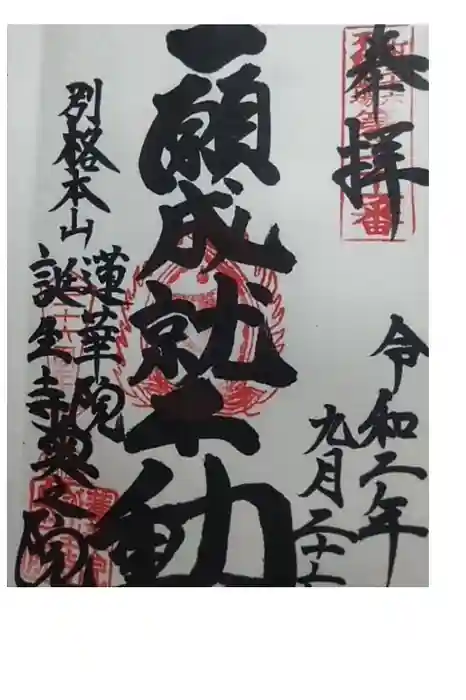 奉拝
令和二年
九月二十
一願成就不動
別格本山
蓮華院
誕生寺奥之院